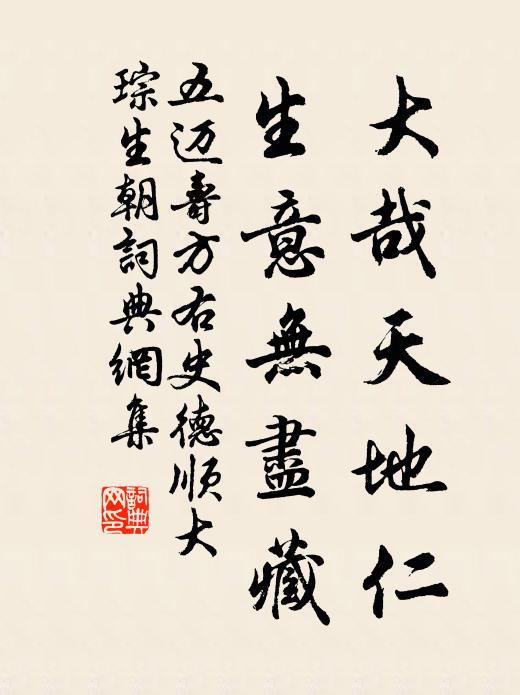 大哉天地仁
生意無盡藏
五迈壽方右史德順大
琮生朝詞典網集
詞典網印